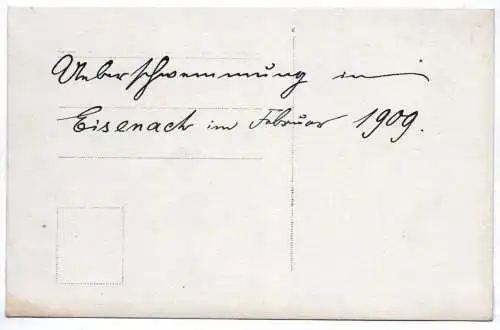 Ueberschwemmung in
Eisenach im Februar 1909.